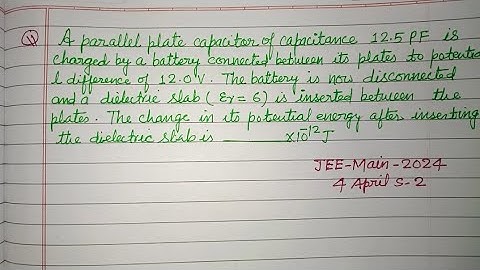 Q A parallel plate capacitor of capacitance 12.5 PF is
charged by a battery connected between its plates to potentia
l difference of 12.0 V. The battery is now disconnected
and a dielectric slab (εr = 6) is inserted between the
plates. The change in its potential energy after inserting
the dielectric slab is ________ ×10⁻¹² J
JEE-Main-2024
4 April S-2